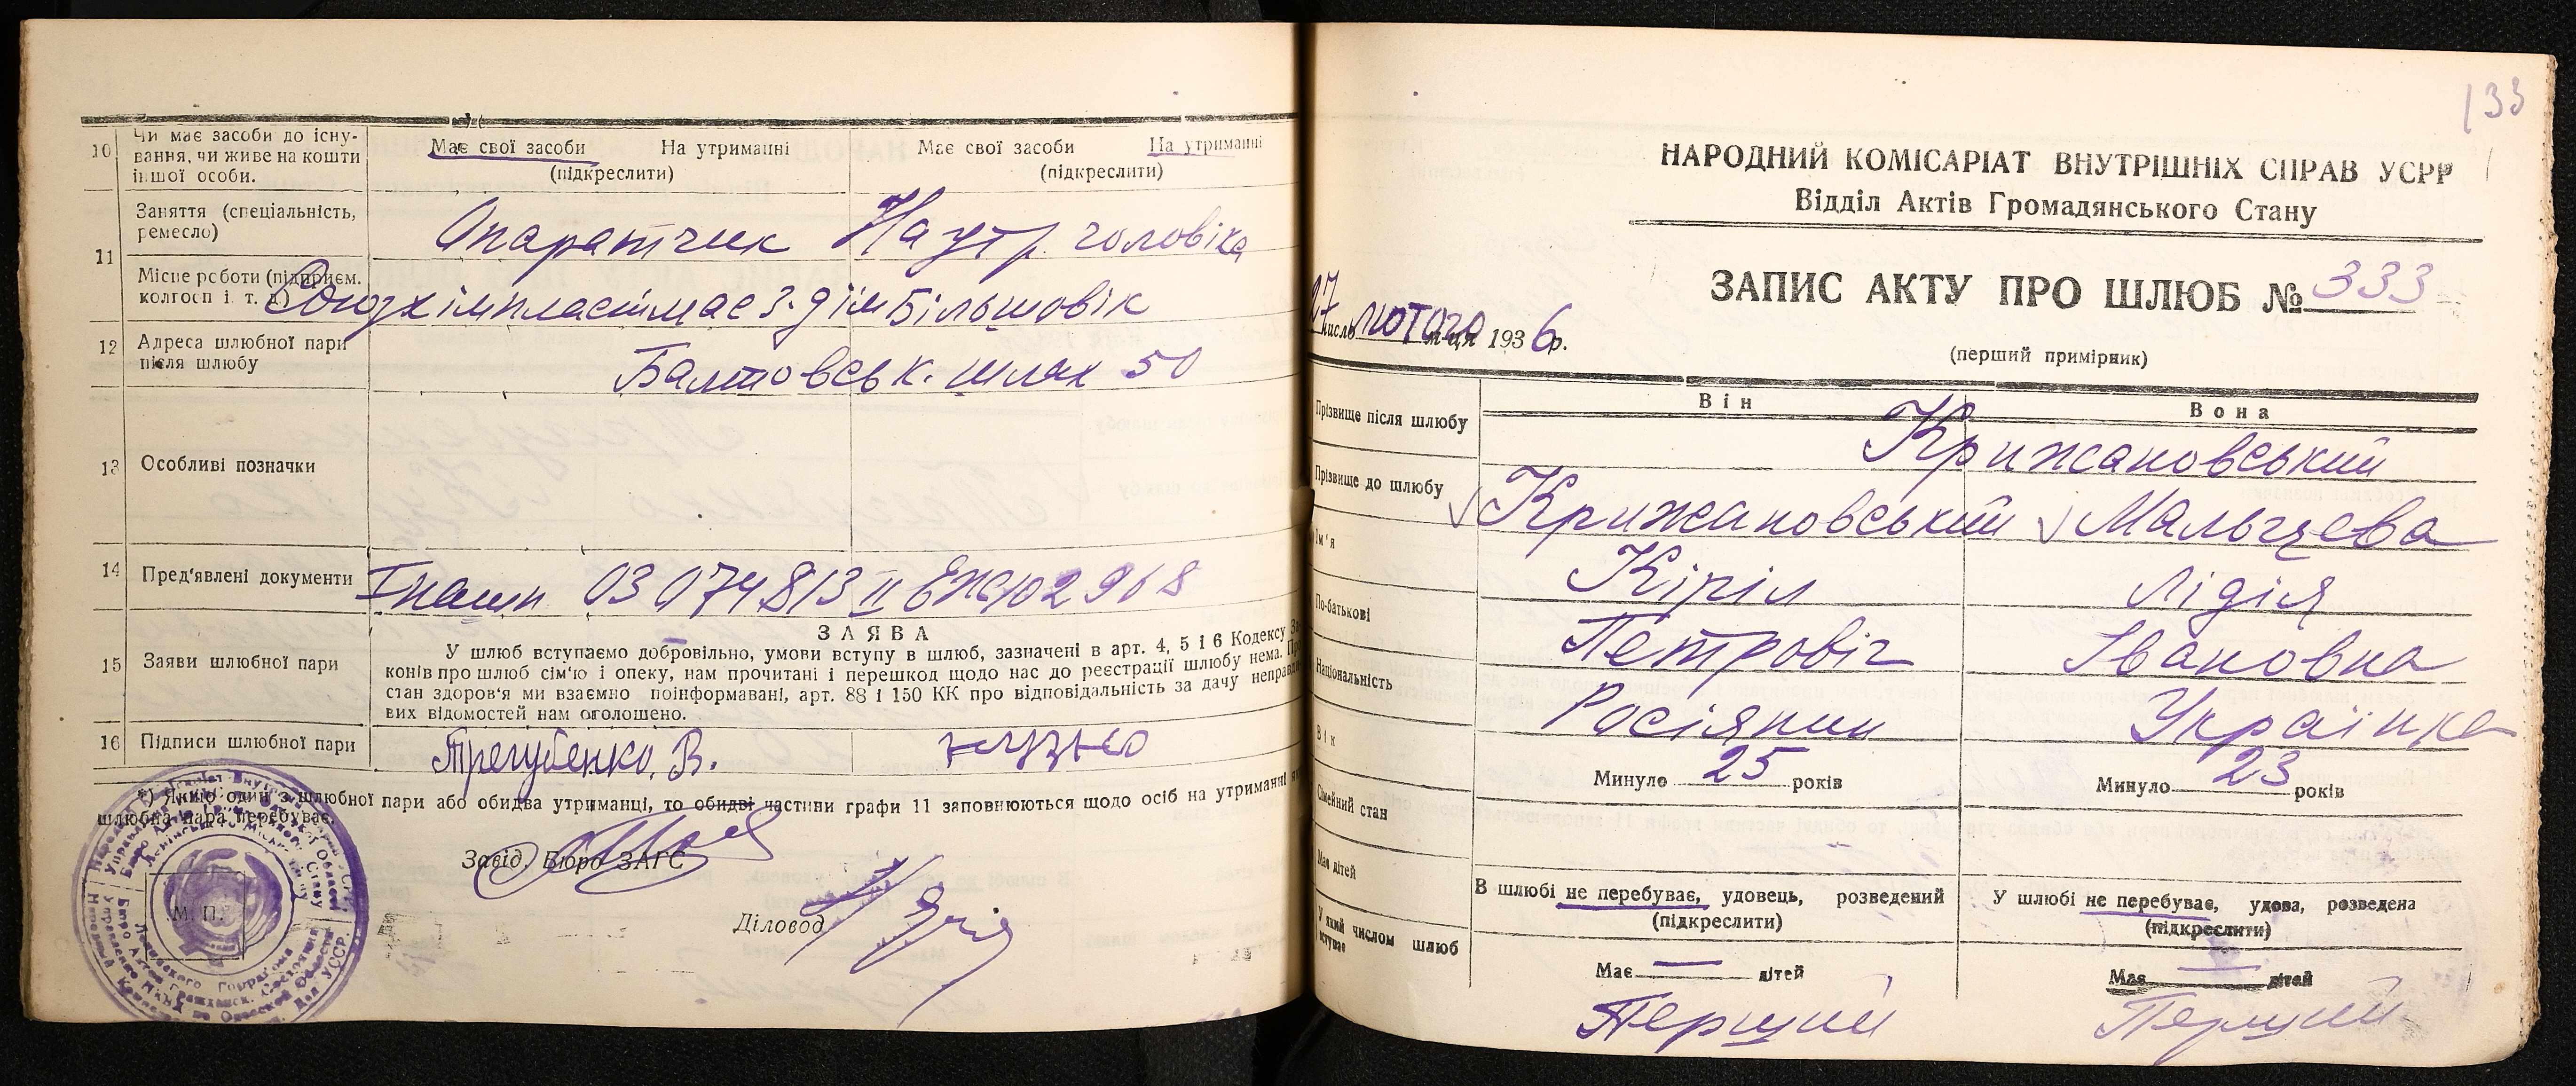 10 Чи має засоби до існування, чи живе на кошти іншої особи.
Має свої засоби На утриманні
(підкреслити)
Має свої засоби На утриманні
(підкреслити)
11 Заняття (спеціальність, ремесло)
Опаратчик На утр. чоловіка
Місце роботи (підприєм. колгосп і. т. д.)
Союзхімпластмас з-д ім Більшовік
12 Адреса шлюбної пари після шлюбу
Балтовськ. шлях 50
13 Особливі позначки
14 Пред'явлені документи
I пашп 03 074813 II ЕЖ 102968
15 Заяви шлюбної пари
ЗАЯВА
У шлюб вступаємо добровільно, умови вступу в шлюб, зазначені в арт. 4, 5 і 6 Кодексу За-
конів про шлюб сім'ю і опеку, нам прочитані і перешкод щодо нас до реєстрації шлюбу нема. Про
стан здоров'я ми взаємно поінформавані, арт. 88 і 150 КК про відповідальність за дачу неправди-
вих відомостей нам оголошено.
16 Підписи шлюбної пари
Трегубенко, В.
*) Якщо один з шлюбної пари або обидва утриманці, то обидві частини графи 11 заповнюються щодо осіб на утриманні
шлюбна пара перебуває.
Завід. Бюро ЗАГС
Діловод
М. П.
133
НАРОДНИЙ КОМІСАРІАТ ВНУТРІШНІХ СПРАВ УСРР
Відділ Актів Громадянського Стану
ЗАПИС АКТУ ПРО ШЛЮБ № 333
27 числа лютого м-ця 1936 р.
(перший примірник)
Він Вона
Прізвище після шлюбу
Крижановський
Прізвище до шлюбу
Крижановський Мальцева
Ім'я
Кіріл Лідія
По-батькові
Петровіч Івановна
Національність
Росіянин Українка
Вік
Минуло 25 років Минуло 23 років
Сімейний стан
В шлюбі не перебуває, удовець, розведений
(підкреслити)
У шлюбі не перебуває, удова, розведена
(підкреслити)
Має дітей
Має — дітей Має — дітей
У який числом шлюб вступає
Перший Перший